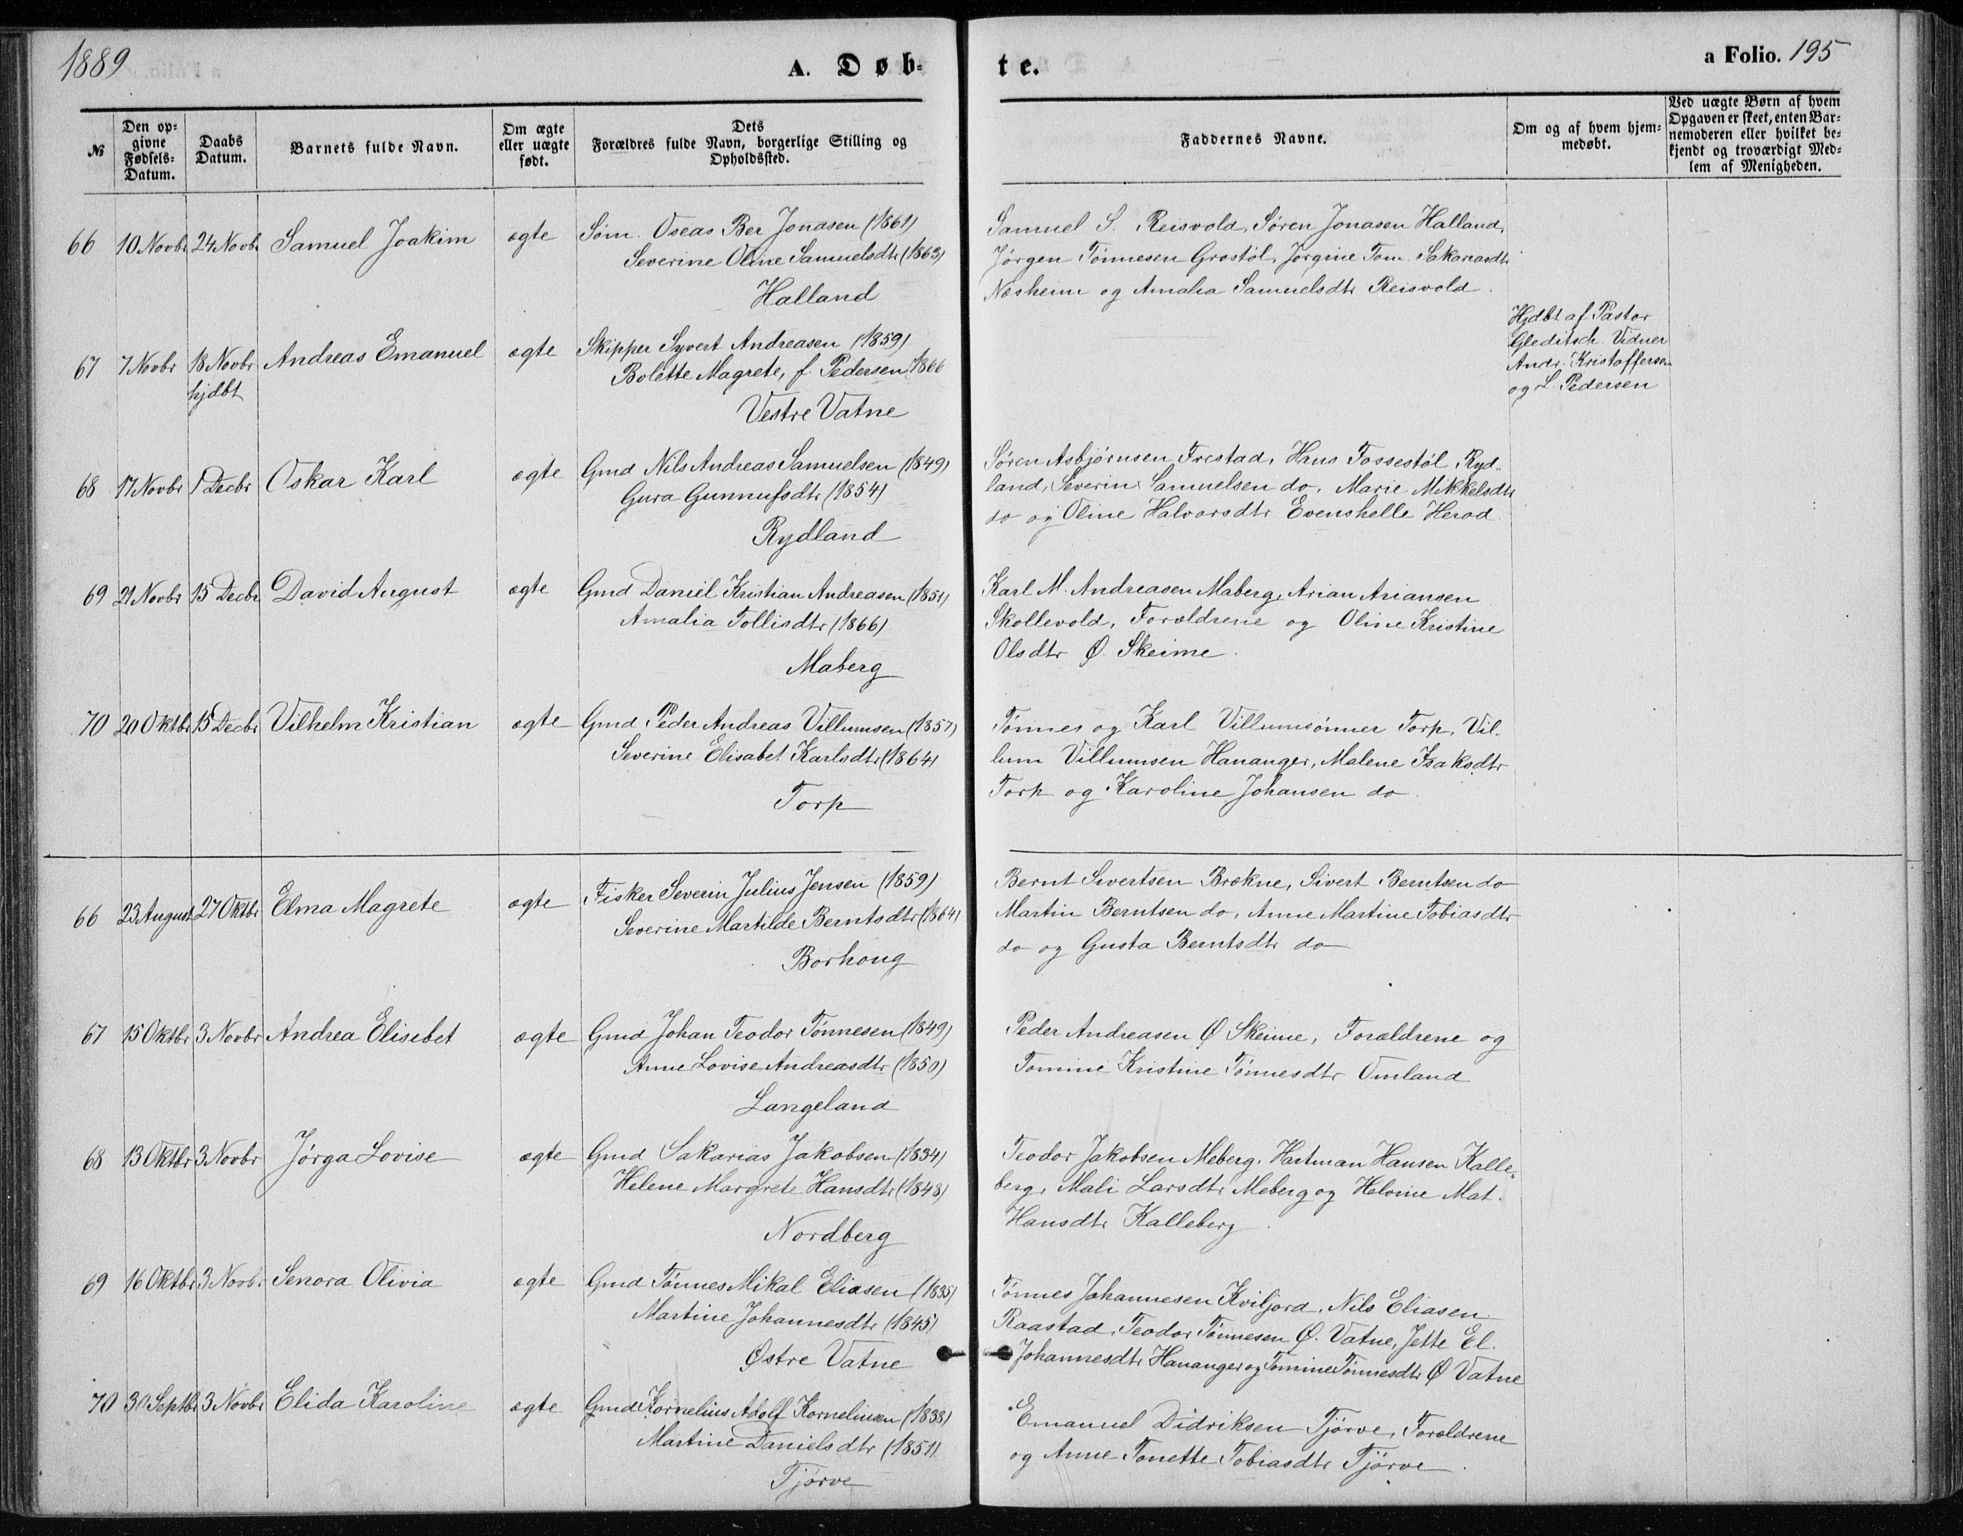 1889
A. Døb-
te.
a Folio. 195
№
Den op-
givne
Fødsels-
Datum.
Daabs
Datum.
Barnets fulde Navn.
Om ægte
eller uægte
født.
Dets
Forældres fulde Navn, borgerlige Stilling og
Opholdssted.
Faddernes Navne.
Om og af hvem hjem-
medøbt.
Ved uægte Børn af hvem
Opgaven er skeet, enten Bar-
nemoderen eller hvilket be-
kjendt og troværdigt Med-
lem af Menigheden.
66 10 Novbr 24 Novbr Samuel Joakim ægte Søm. Oseas Ber Jonasen (1861)
Severine Oline Samuelsdtr (1863)
Halland
Samuel S. Reisvold, Søren Jonasen Halland,
Jørgen Tønnesen Grostøl, Jørgine Tom. Sakariasdtr
Næsheim og Amalia Samuelsdtr Reisvold.
67 7 Novbr 18 Novbr Andreas Emanuel ægte Skipper Syvert Andreasen (1859)
hjdbt
Bolette Magrete, f. Pedersen 1866
Vestre Vatne
Hjdbt af Pastor
Gleditsch. Vidner
Andr. Kristoffersen
og L. Pedersen
68 17 Novbr 1 Decbr Oskar Karl ægte Gmd Nils Andreas Samuelsen (1849)
Gura Gunnufsdtr (1854)
Rydland
Søren Asbjørnsen Frestad, Hans Fossestøl, Ryd-
land, Severin Samuelsen do, Marie Mikkelsdtr
do og Oline Halvorsdtr Evenshelle Herad
69 21 Novbr 15 Decbr David August ægte Gmd Daniel Kristian Andreasen (1851)
Amalia Tollisdtr (1866)
Maberg
Karl M. Andreasen Maberg, Arian Ariansen
Skollevold, Forældrene og Oline Kristine
Olsdtr Ø. Skeime.
70 20 Oktbr 15 Decbr Vilhelm Kristian ægte Gmd Peder Andreas Villumsen (1857)
Severine Elisabet Karlsdtr (1864)
Torp
Tønnes og Karl Villumsønner Torp, Vil-
lum Villumsen Hananger, Malene Isaksdtr
Torp og Karoline Johansen do
66 23 August 27 Oktbr Elma Magrete ægte Fisker Severin Julius Jensen (1859)
Severine Martilde Berntsdtr (1864)
Borhoug
Bernt Sivertsen Brekne, Sivert Berntsen do
Martin Berntsen do, Anne Martine Tobiasdtr
do og Gusta Berntsdtr do
67 15 Oktbr 3 Novbr Andrea Elisebet ægte Gmd Johan Teodor Tønnesen (1849)
Anne Lovise Andreasdtr (1850)
Langeland
Peder Andreasen Ø Skeime, Forældrene og
Tomine Kristine Tønnesdtr Omland
68 13 Oktbr 3 Novbr Jørga Lovise ægte Gmd Sakarias Jakobsen (1834)
Helene Margrete Hansdtr (1848)
Nordberg
Teodor Jakobsen Meberg, Hartman Hansen Kalle-
berg, Mali Larsdtr Meberg og Helvine Mat.
Hansdtr Kalleberg.
69 16 Oktbr 3 Novbr Senora Olivia ægte Gmd Tønnes Mikal Eliasen (1835)
Martine Johannesdtr (1845)
Østre Vatne
Tønnes Johannesen Kviljord, Nils Eliasen
Raastad, Teodor Tønnesen Ø. Vatne, Jette El.
Johannesdtr Hananger og Tomine Tønnesdtr Ø Vatne
70 30 Septbr 3 Novbr Elida Karoline ægte Gmd Kornelius Adolf Korneliusen (1838)
Martine Danielsdtr (1851)
Tjørve
Emanuel Didriksen Tjørve, Forældrene
og Anne Tonette Tobiasdtr Tjørve.